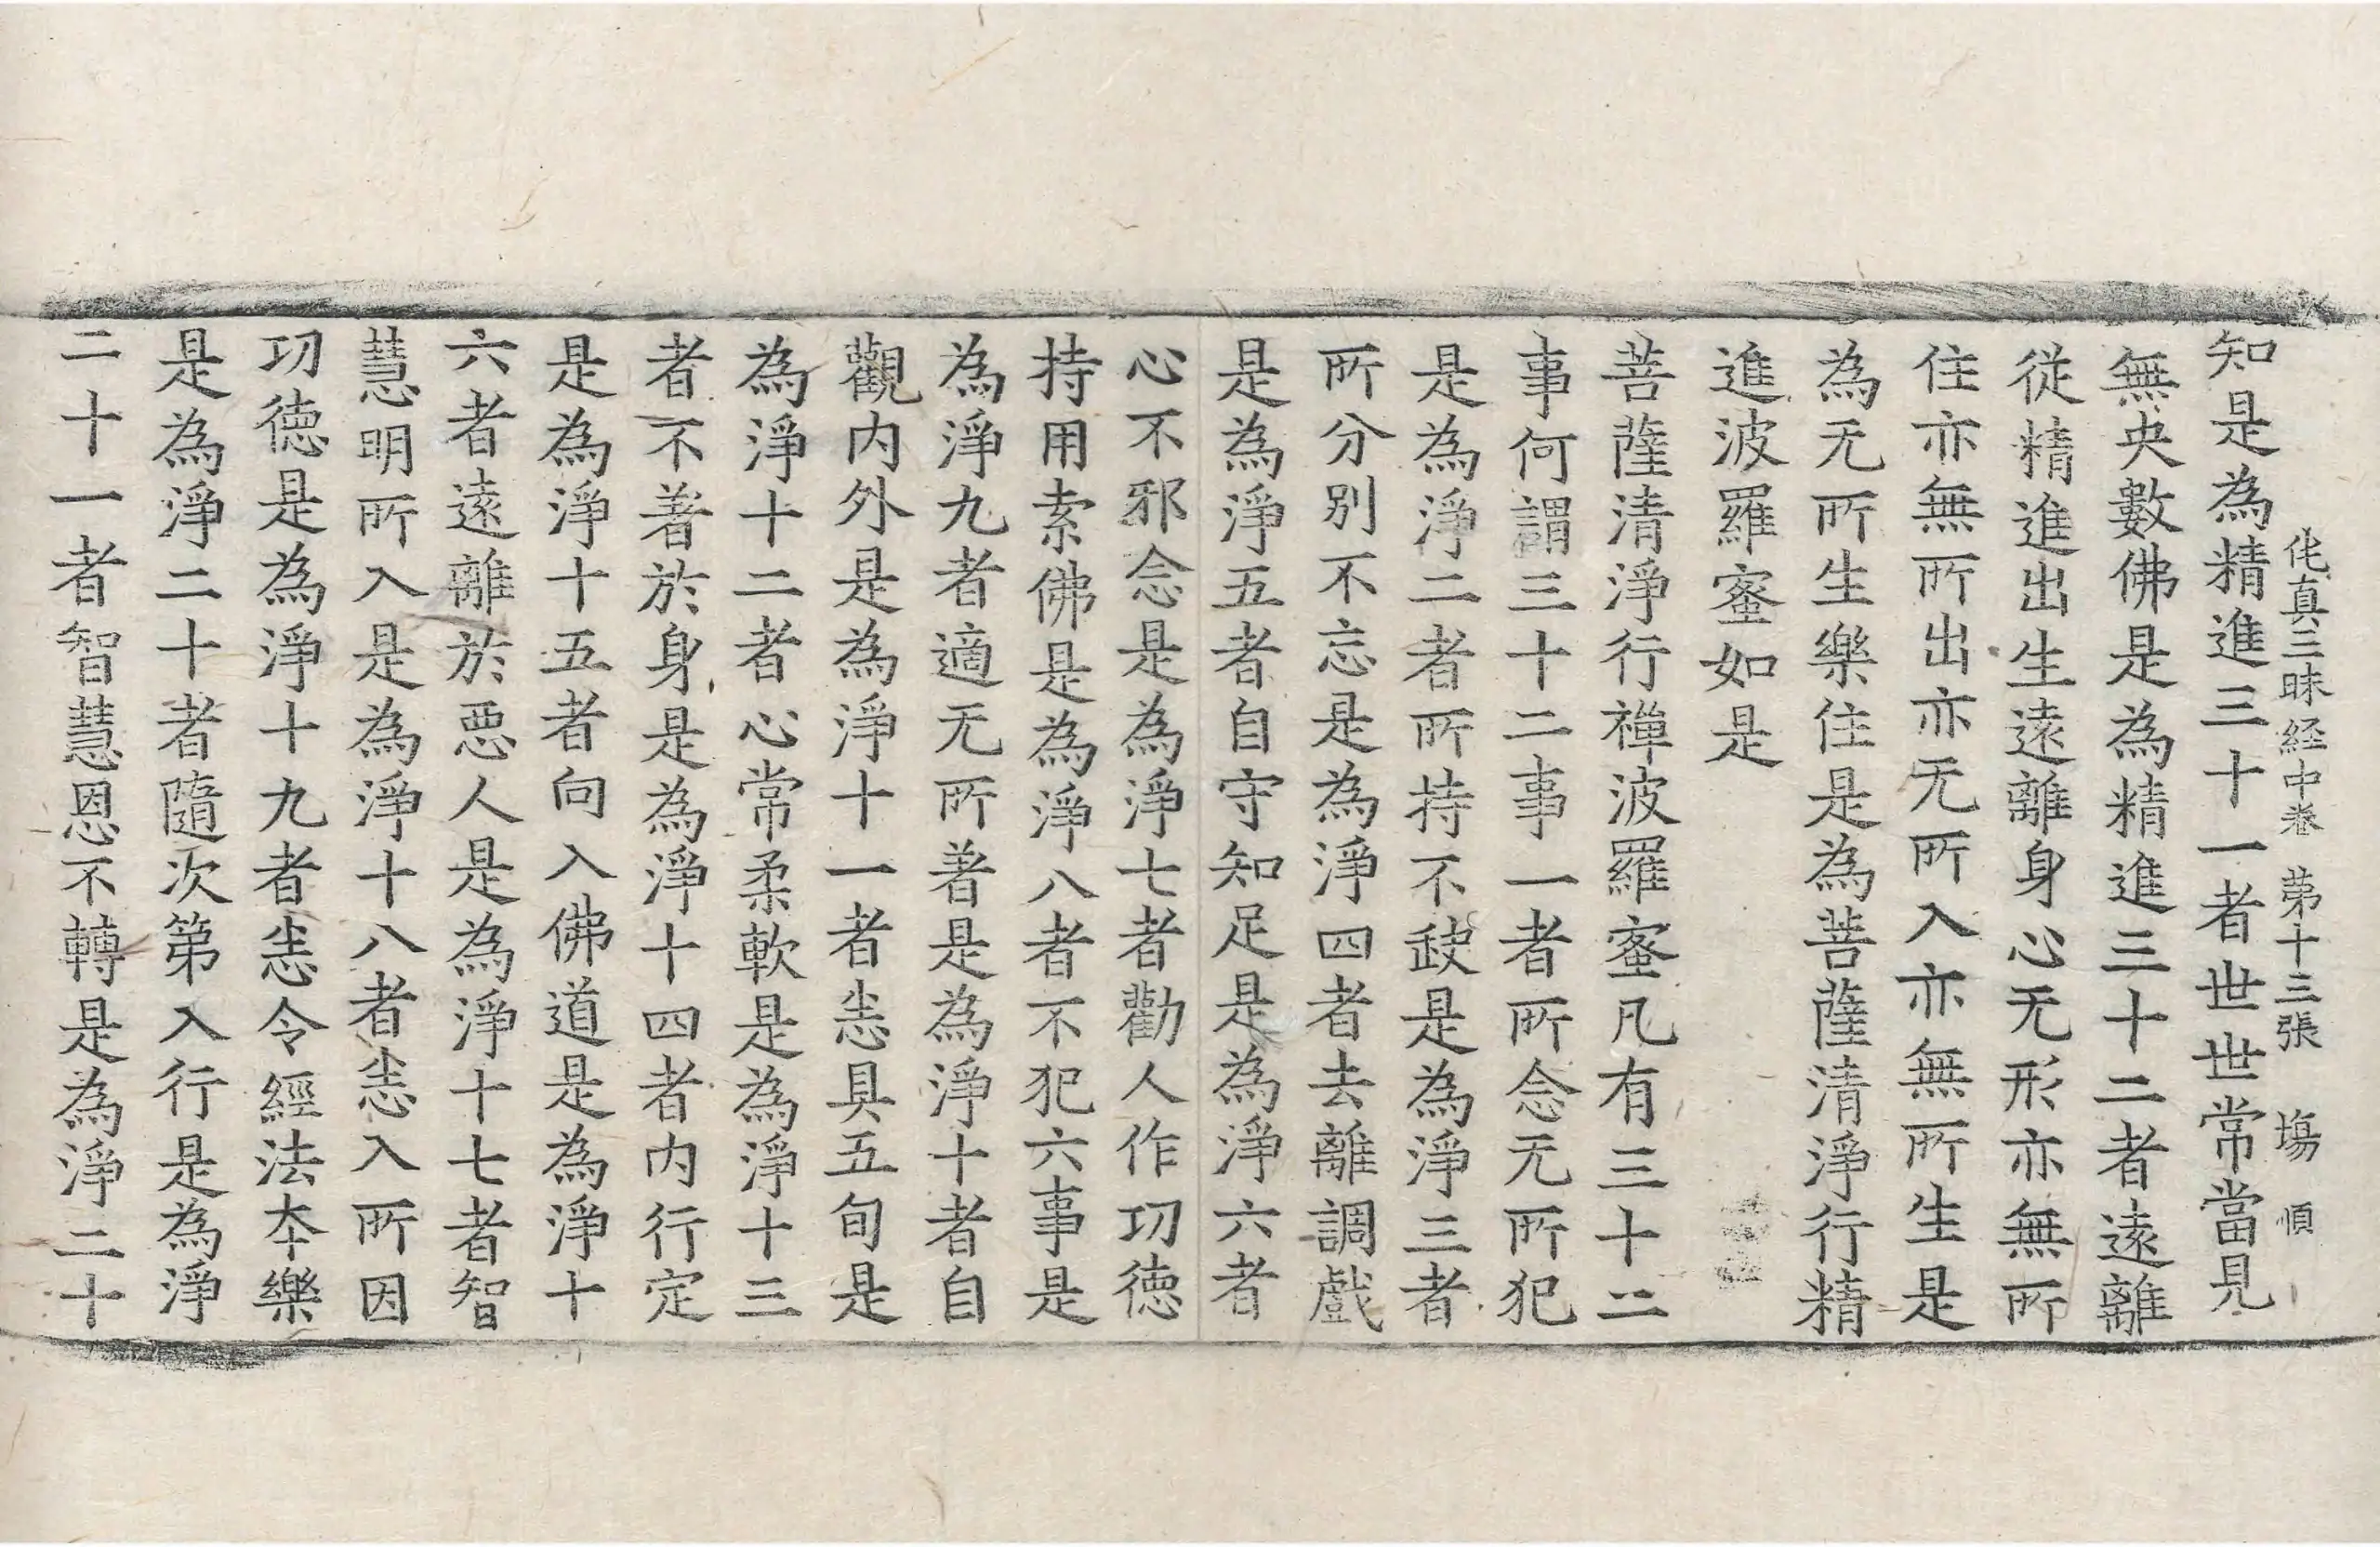 伅真三昧経中卷 第十三張 塲 順
知是為精進三十一者世世常當見
無央數佛是為精進三十二者遠離
従精進出生遠離身心无形亦無所
住亦無所出亦无所入亦無所生是
為无所生樂住是為菩薩清淨行精
進波羅蜜如是
菩薩清淨行禪波羅蜜凡有三十二
事何謂三十二事一者所念无所犯
是為淨二者所持不𡙇是為淨三者
所分別不忘是為淨四者去離調戲
是為淨五者自守知足是為淨六者
心不邪念是為淨七者勸人作功德
持用索佛是為淨八者不犯六事是
為淨九者適无所著是為淨十者自
觀内外是為淨十一者恙具五旬是
為淨十二者心常柔軟是為淨十三
者不著於身是為淨十四者内行定
是為淨十五者向入佛道是為淨十
六者遠離於惡人是為淨十七者智
慧明所入是為淨十八者恙入所因
功德是為淨十九者恙令經法夲樂
是為淨二十者隨次第入行是為淨
二十一者智慧恩不轉是為淨二十